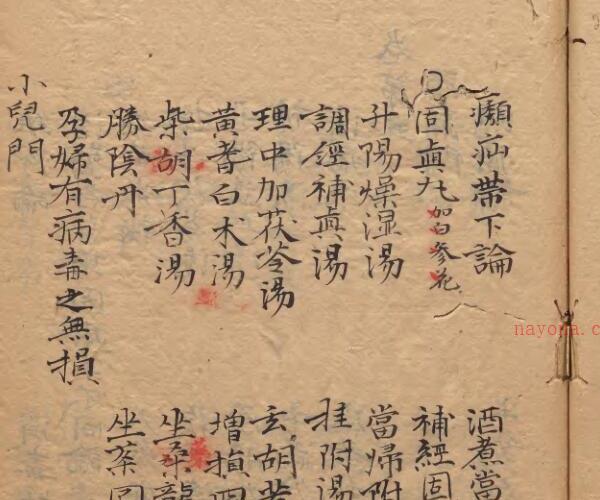 癩疝帶下論
酒煮當
固眞丸 加白參花
補經固
升陽燥湿湯
當歸附
調經補眞湯
桂附湯
理中加茯苓湯
玄胡苦
黃耆白术湯
增損四
柴胡丁香湯
坐藥龍
勝陰丹
坐藥
孕婦有病毒之無損
小兒門
nayona.c